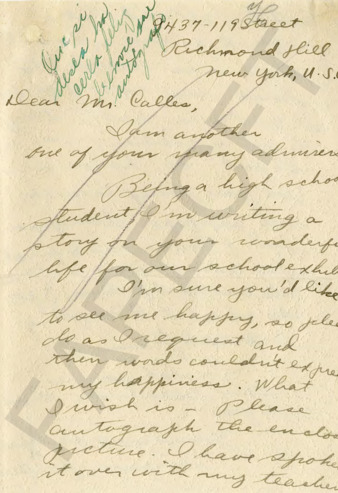 Que si
desea ha
cerla feliz
8437-119 Street
Richmond Hill
New York, U.S.
Dear Mr. Calles,
I am another
one of your many admirers
Being a high schoo
student, I'm writing a
story on your wonderfu
life for our school exhib
I'm sure you'd like
to see me happy, so plea
do as I request and
then words couldn't expre
my happiness. What
I wish is - Please
autograph the enclos
picture. I have spoke
it over with my teacher
FAPECFT